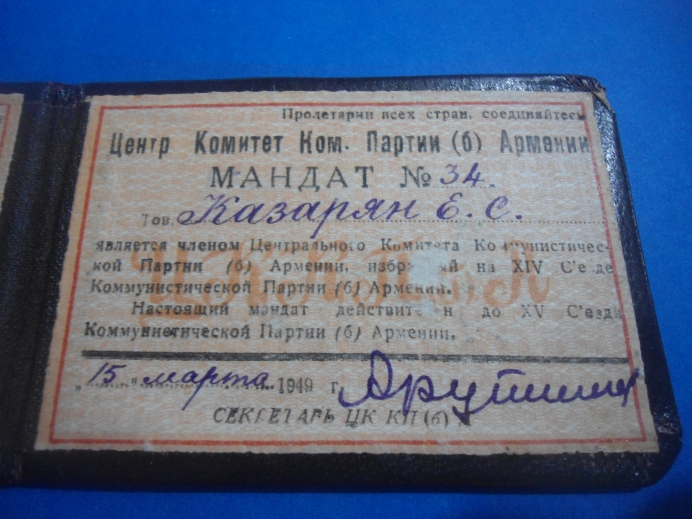 Пролетарии всех стран, соединяйтесь
Центр Комитет Ком. Партии (б) Армении
МАНДАТ № 34.
Тов. Казарян Е. С.
является членом Центрального Комитета Коммунистичес-
кой Партии (б) Армении, избр й на XIV С'езде
Коммунистической Партии (б) Армении.
Настоящий мандат действит н до XV С'езда
Коммунистической Партии (б) Армении.
„15" марта 1949 г.
СЕКРЕТАРЬ ЦК КП(б)